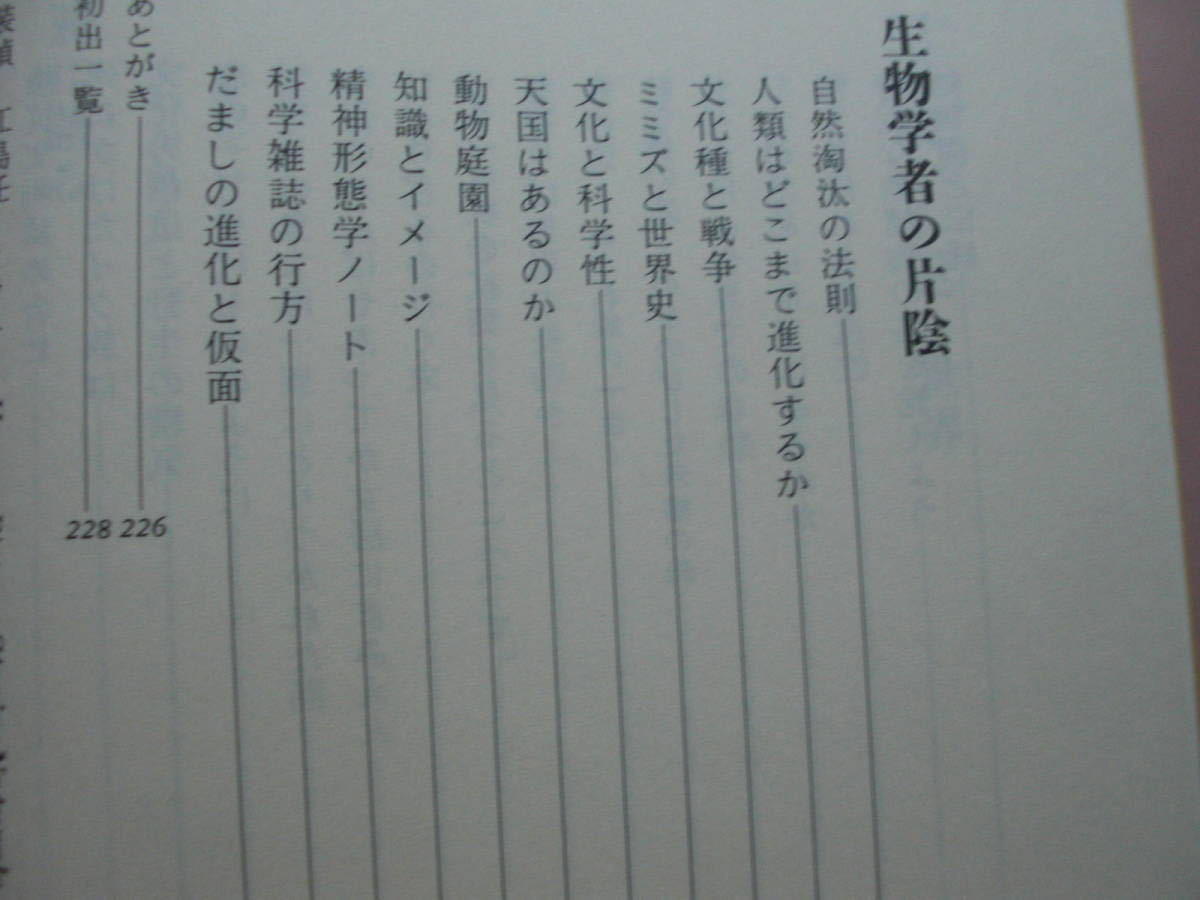 生物学者の片陰
自然淘汰の法則
人類はどこまで進化するか
文化種と戦争
ミミズと世界史
文化と科学性
天国はあるのか
動物庭園
知識とイメージ
精神形態学ノート
科学雑誌の行方
だましの進化と仮面
あとがき 226
初出一覧 228